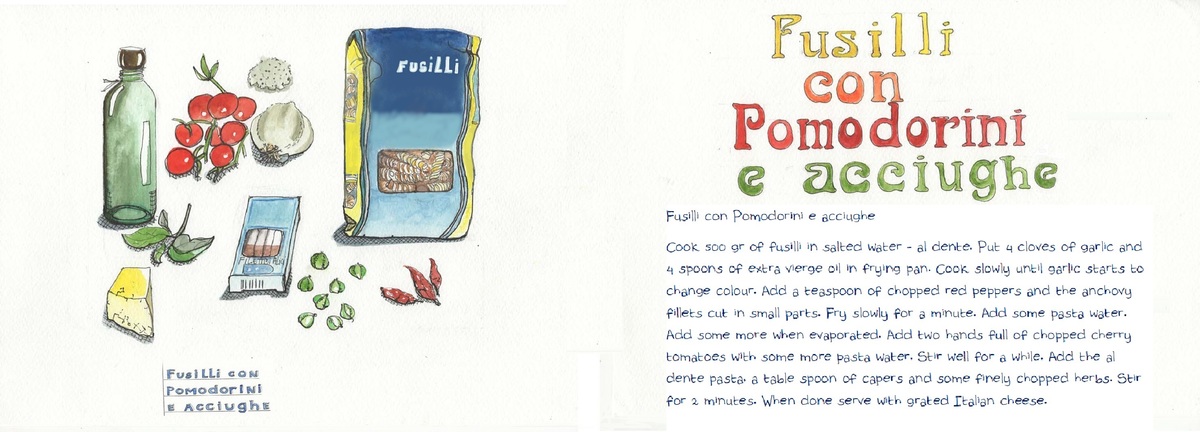 FUSILLI
FUSILLI CON
POMODORINI
E ACCIUGHE
Fusilli
con
Pomodorini
e acciughe
Fusilli con Pomodorini e acciughe
Cook 500 gr of fusilli in salted water - al dente. Put 4 cloves of garlic and
4 spoons of extra vierge oil in frying pan. Cook slowly until garlic starts to
change colour. Add a teaspoon of chopped red peppers and the anchovy
fillets cut in small parts. Fry slowly for a minute. Add some pasta water.
Add some more when evaporated. Add two hands full of chopped cherry
tomatoes with some more pasta water. Stir well for a while. Add the al
dente pasta. a table spoon of capers and some finely chopped herbs. Stir
for 2 minutes. When done serve with grated Italian cheese.